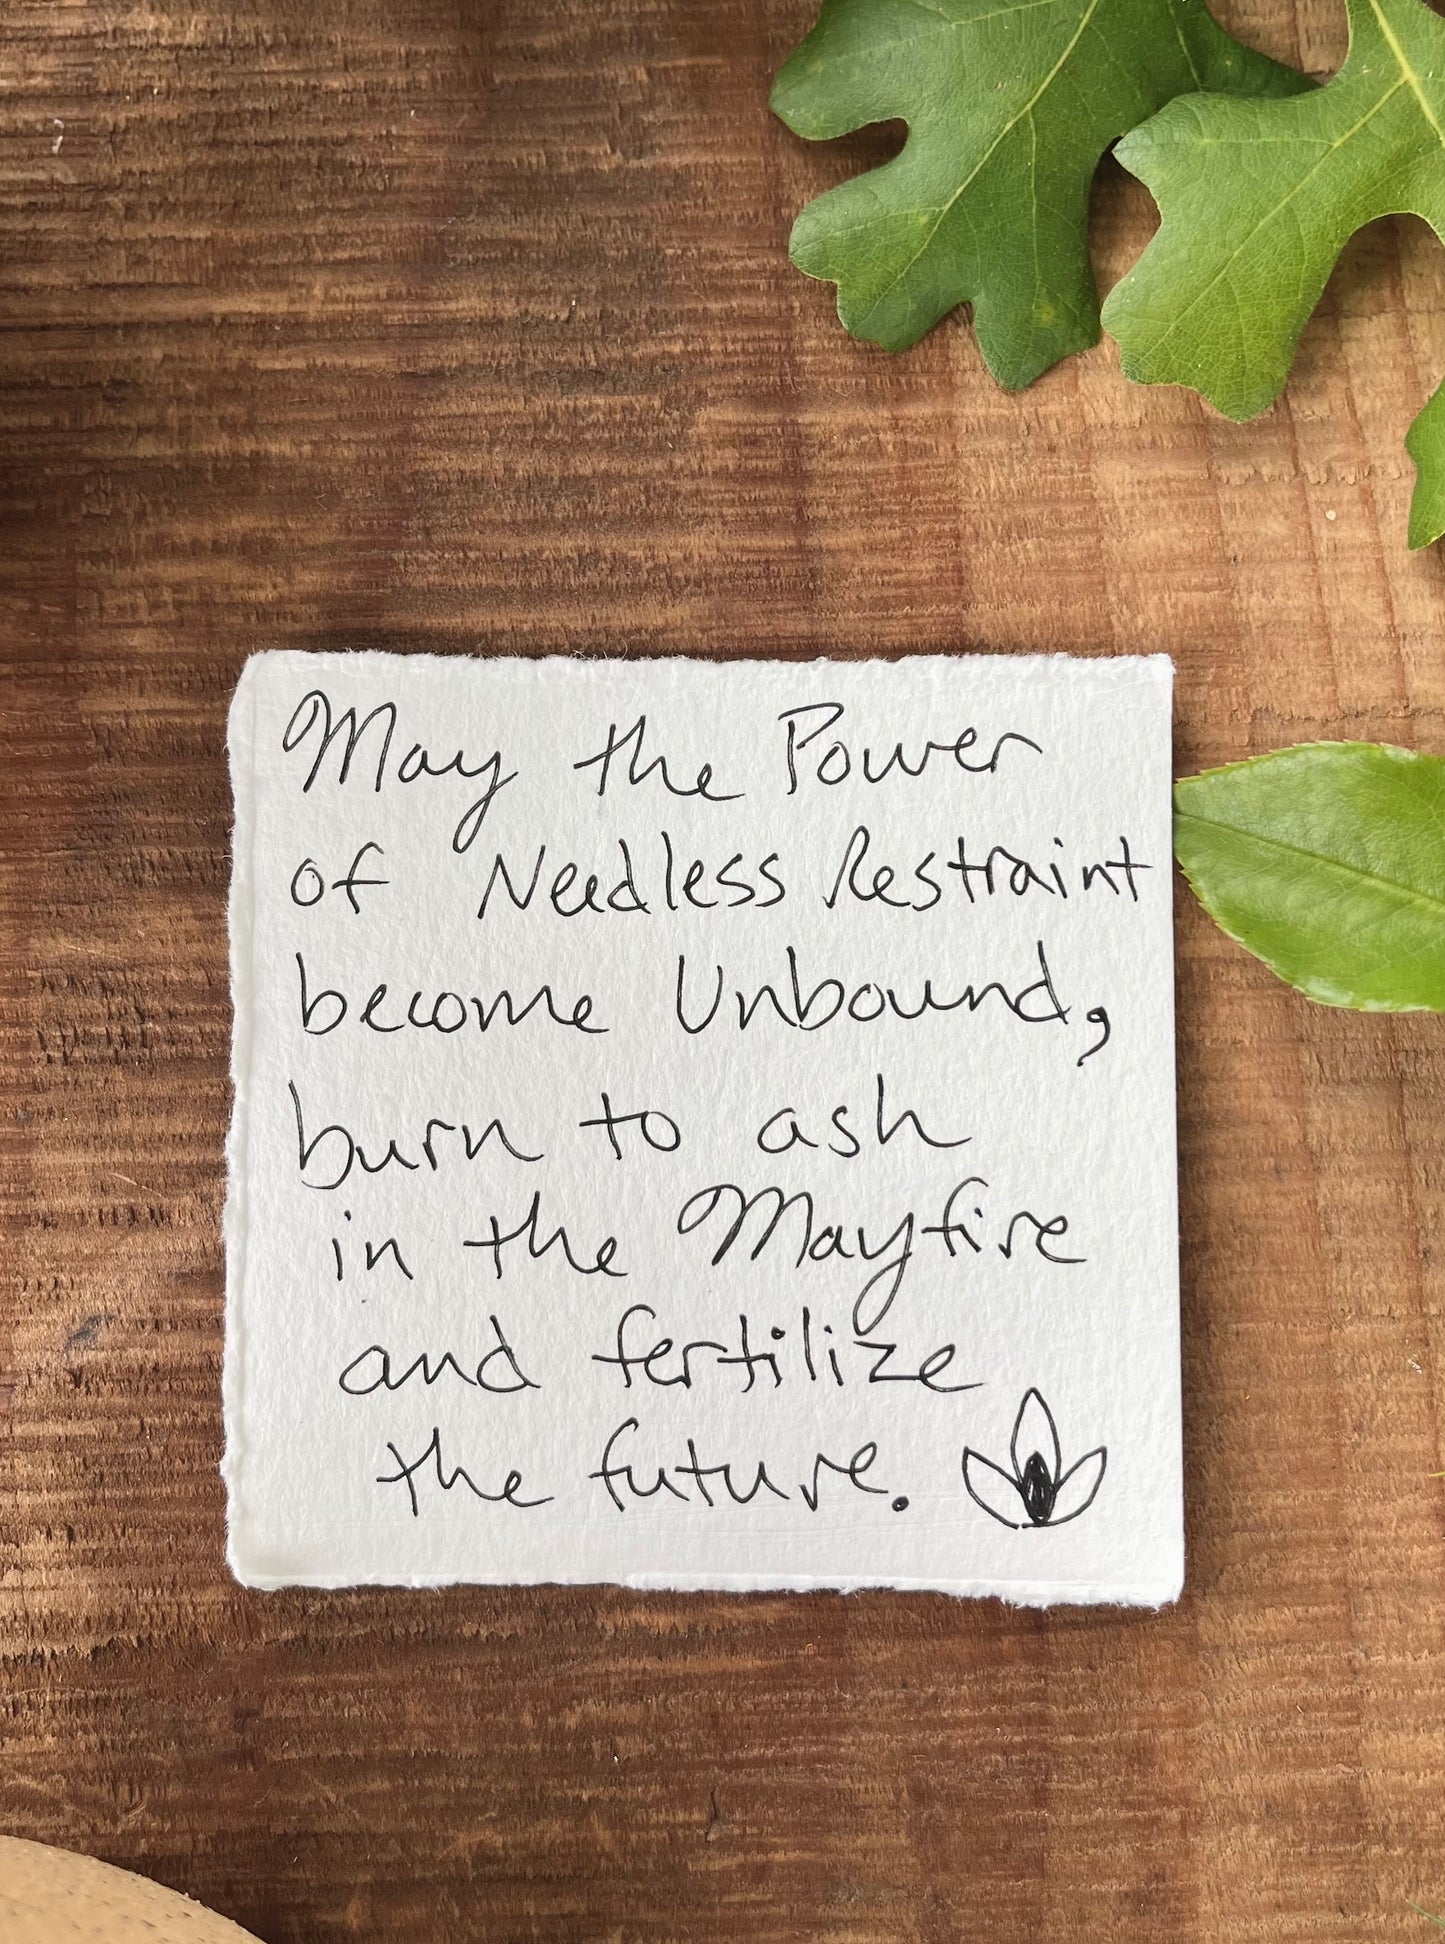 May the Power
of Needless Restraint
become Unbound,
burn to ash
in the Mayfire
and fertilize
the future.